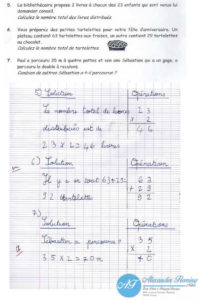 5. La bibliothécaire propose 2 livres à chacun des 23 enfants qui sont venus lui
demander conseil.
Calcule le nombre total de livres distribués.
6. Vous préparez des petites tartelettes pour votre fête d'anniversaire. Un
plateau contient 63 tartelettes aux fraises, un autre contient 29 tartelettes
au chocolat.
Calcule le nombre total de tartelettes
7. Paul a parcouru 35 m à quatre pattes et son ami Sébastien qui a un gage, a
parcouru le double à reculons.
Combien de mètres Sébastien a-t-il parcouru ?
5) Solution Opération
Le nombre total de livres 23
x 2
distribués est de 46
23 x 2 = 46 livres
6) Solution Opération
Il y a en tout 63+29= 63
+ 29
92 tartelettes 92
7)
Solution Opération
Sébastien a parcouru : 35
x 2
35 x 2 = 70 m 70
Alexander Fleming
AF